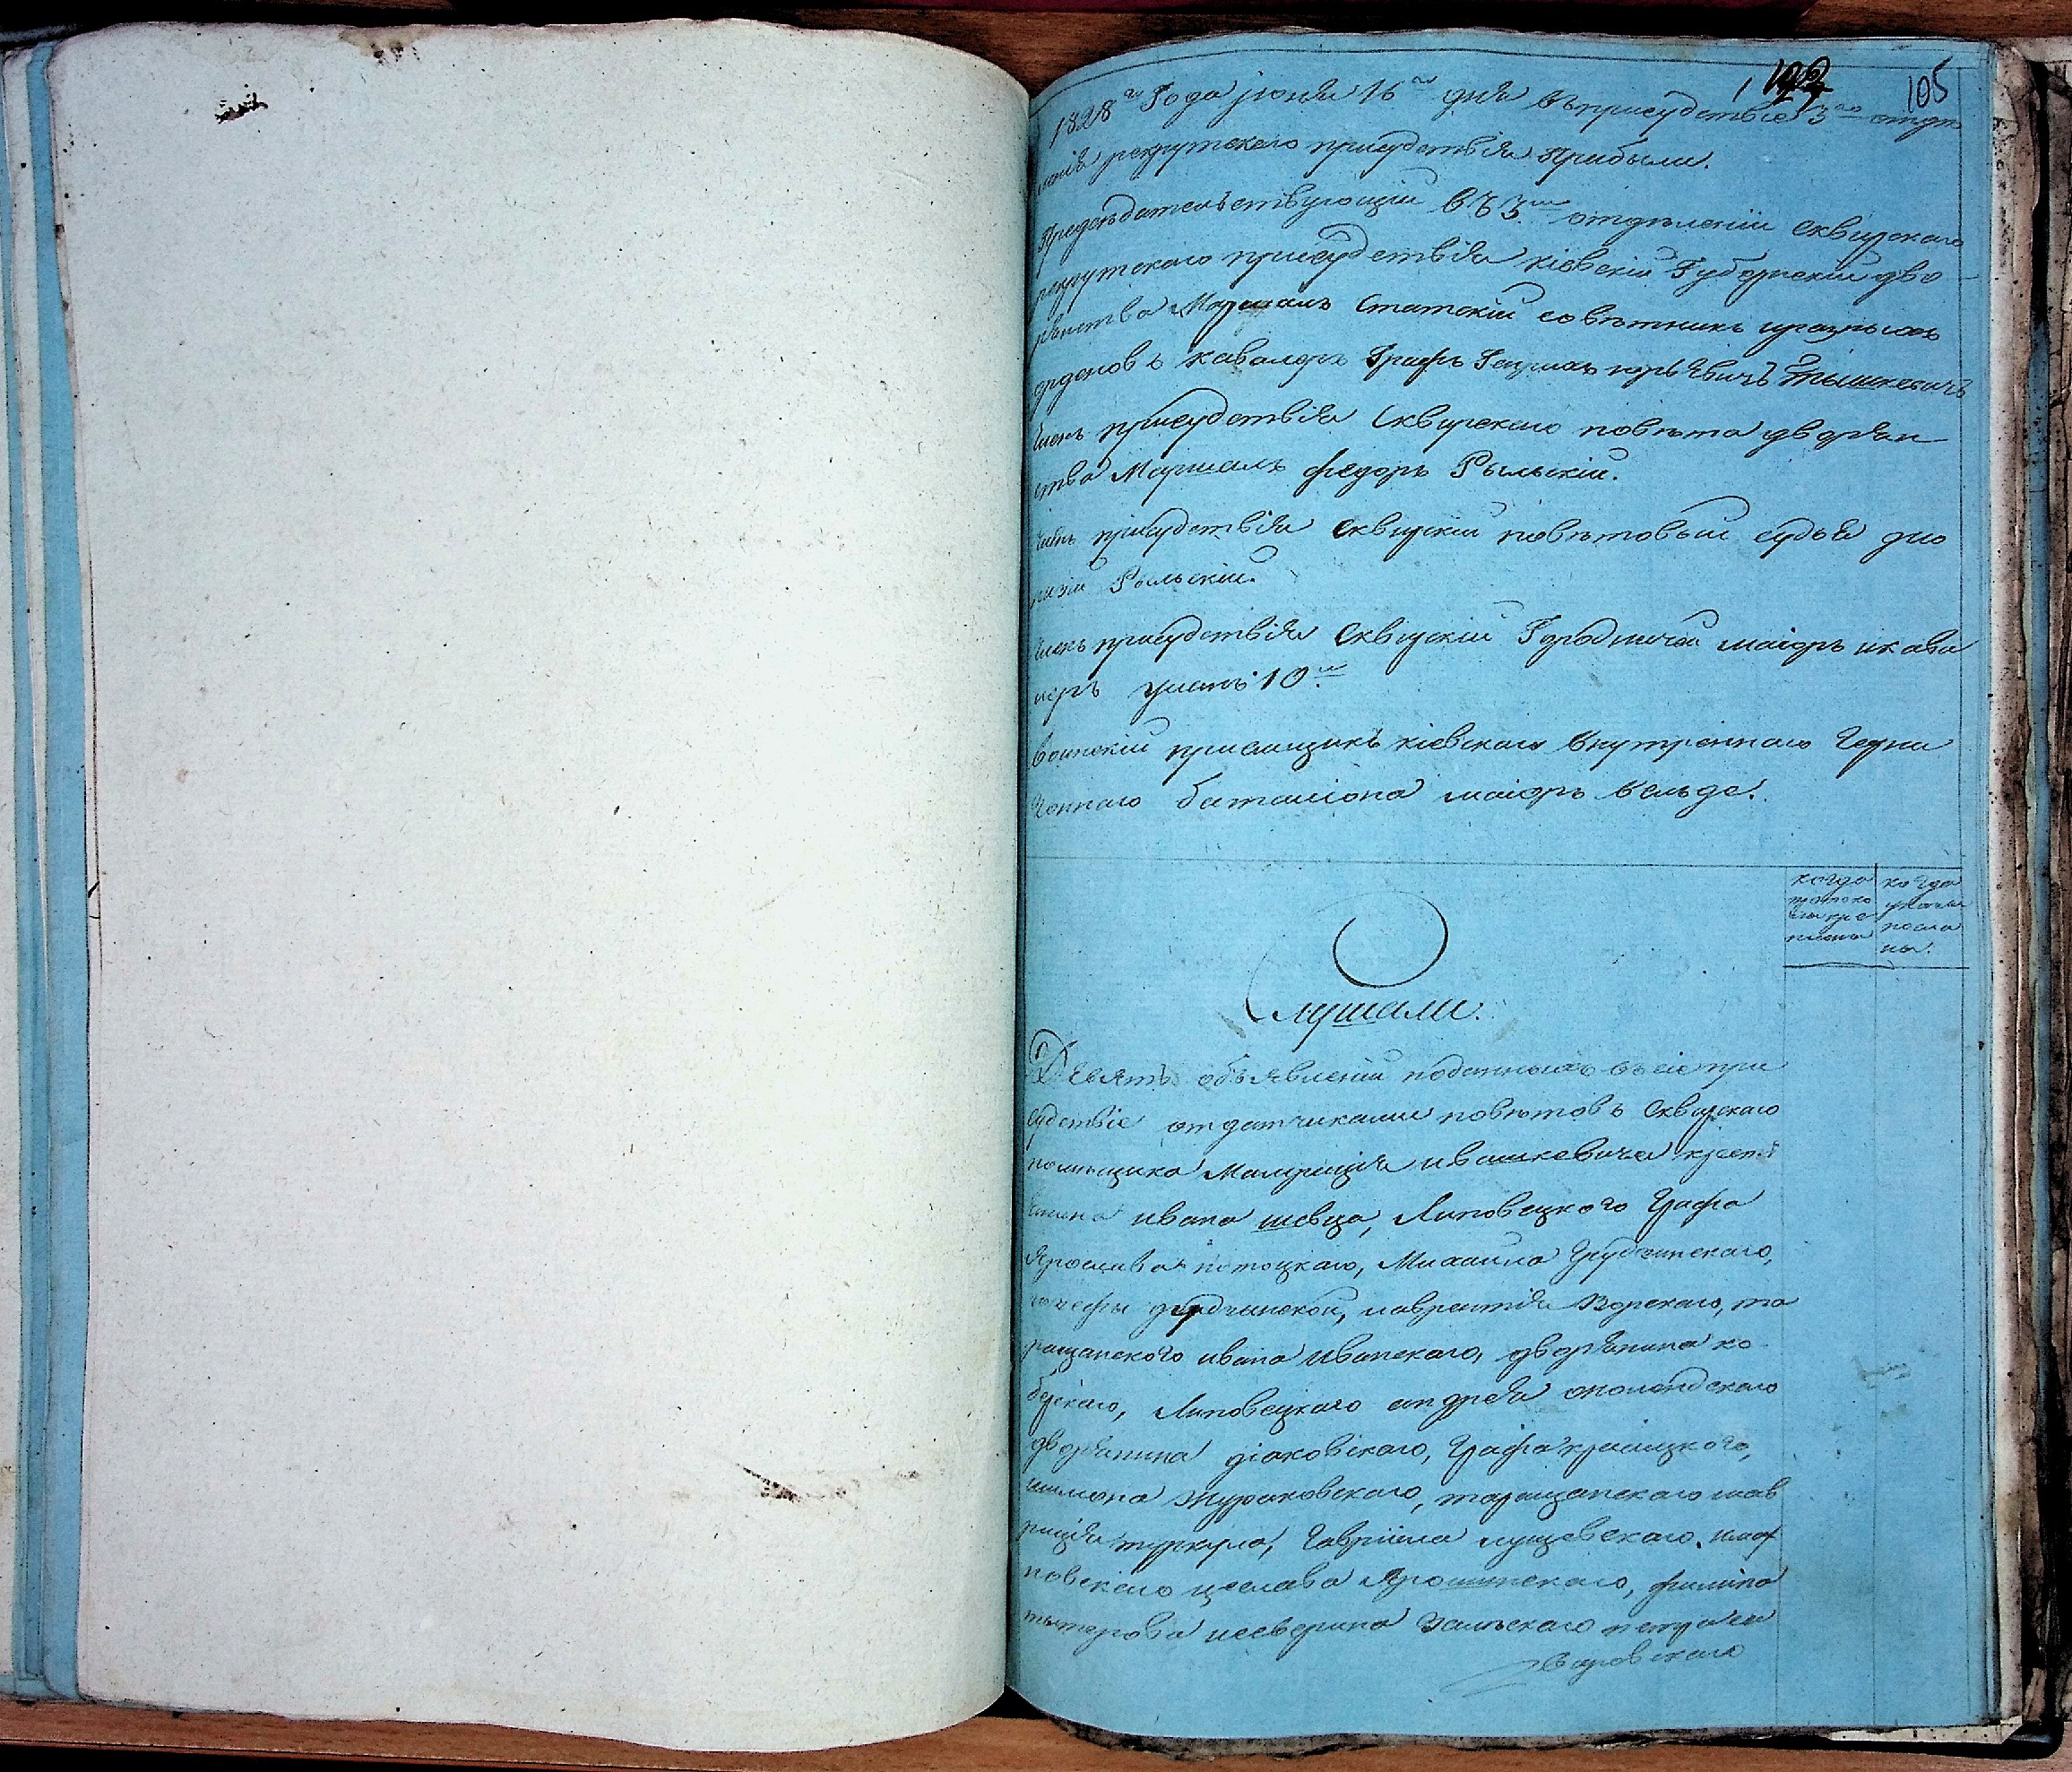 105
1828го Года июня 16го дня въ присудствіе 3го отдѣ
ленія рекрутскаго присудствія Прибыли.
Предсѣдательствующіи въ 3мъ отдѣленіи Сквирскаго
рекрутскаго присудствія кіевскіи Губернскіи дво-
рянства Маршалъ Статскіи совѣтникъ и разныхъ
орденовъ кавалеръ Графъ Генрихъ Тышкевичъ
Членъ присудствія Сквирскаго повѣта дворян
ства Маршалъ федоръ Рыльскіи.
Членъ присудствія Сквирскіи повѣтовыи судья дио
низіи Рыльскіи.
Членъ присудствія Сквирскіи Городничеи маіоръ и кава
леръ
воинскіи приемщикъ кіевскаго внутренняго Гарни
зоннаго баталіона маіоръ вельде.
когда
протоко
лы кре
плены
когда
указы
посла
ны.
Слушали.
Девять объявленіи поданныхъ въ сіе при
судствіе отдатчиками повѣтовъ Сквирскаго
помѣщика Мауриція ивашкевича крестя
нина ивана шевца, Липовецкого Графа
Ярослава потоцкаго, Михаила Грудчинскаго,
Грудчинской, лаврентія Ворскаго, та
ращанского ивана иванскаго, дворянина ко
берскаго, Липовецкаго андрея
дворянина діаковскаго, Графа красицкого,
Жураковскаго, таращанскаго мав
риція туркула, Гавріила лущевскаго, и мах
новскаго цеслава Ярошинскаго, филипа
северина Залѣскаго петра са
варовскаго